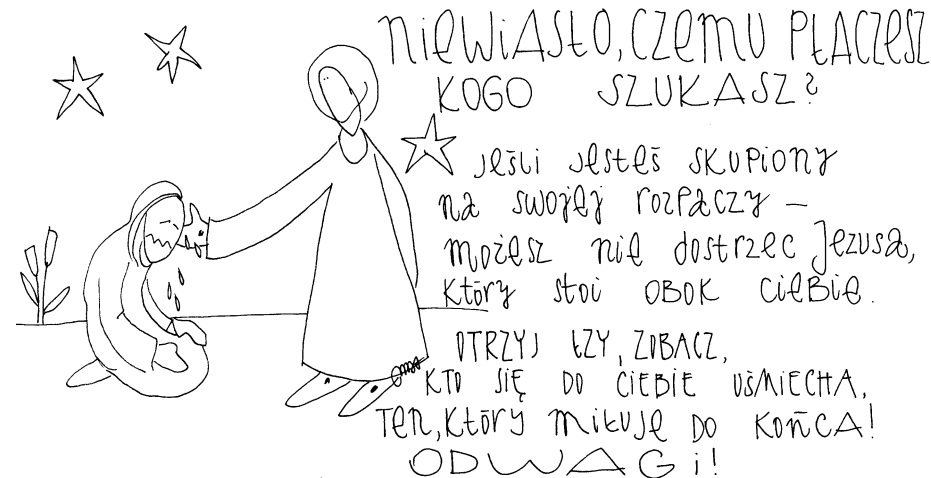 NIEWIASTO, CZEMU PŁACZESZ
KOGO SZUKASZ?
Jeśli jesteś skupiony
na swojej rozpaczy –
możesz nie dostrzec Jezusa,
który stoi OBOK CIEBIE.
OTRZYJ ŁZY, ZOBACZ,
KTO SIĘ DO CIEBIE UŚMIECHA,
Ten, który miłuje DO KOŃCA!
ODWAGI!